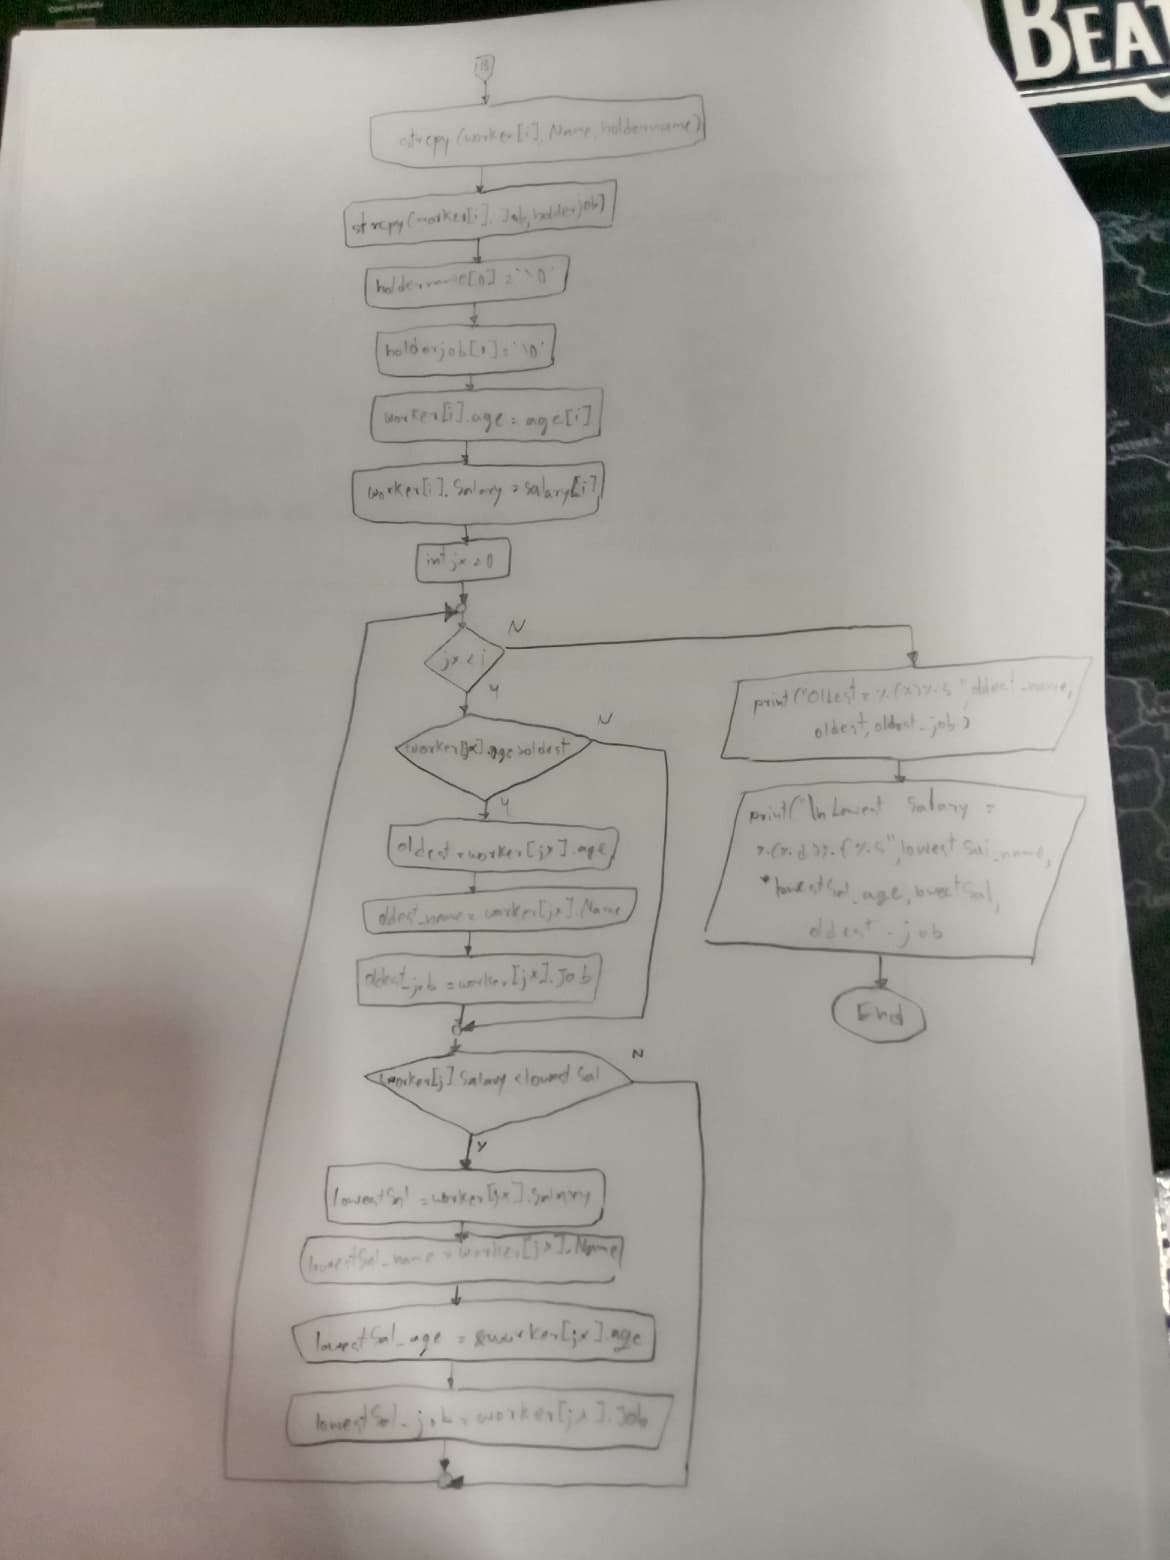 BEAT
strcpy(worker[i].Name,holdername)
strcpy(worker[i].Job,holderjob)
holdername[0]='\0'
holderjob[0]='\0'
worker[i].age=age[i]
worker[i].Salary=salary[i]
int jx=0
jx<i
N
Y
worker[jx].age>oldest
N
Y
oldest=worker[jx].age
oldest_name=worker[jx].Name
oldest_job=worker[jx].Job
worker[j].Salary<lowestSal
N
Y
lowestSal=worker[jx].Salary
lowestSal_name=worker[jx].Name
lowestSal_age=&worker[jx].age
lowestSal_job=worker[jx].Job
oldest_name,
oldest,oldest_job)
print("\nLowest Salary =
lowestSal_name,
*lowestSal_age,lowestSal,
oldest_job
End